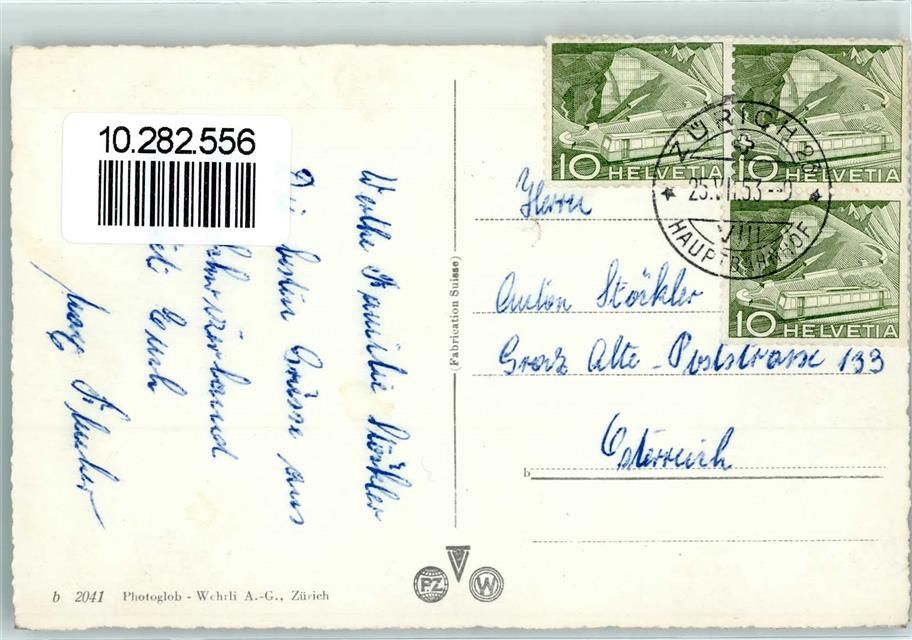 10.282.556
Werthe Familie Stöckler
Die besten Grüsse aus
Schweizerland
Euch
10 HELVETIA
10 HELVETIA
10 HELVETIA
ZÜRICH
HAUPTBAHNHOF
Herrn
Anton Stöckler
Graz Alte-Poststrasse 133
Österreich
b
(Fabrication Suisse)
b 2041 Photoglob - Wehrli A.-G., Zürich
PZ
W